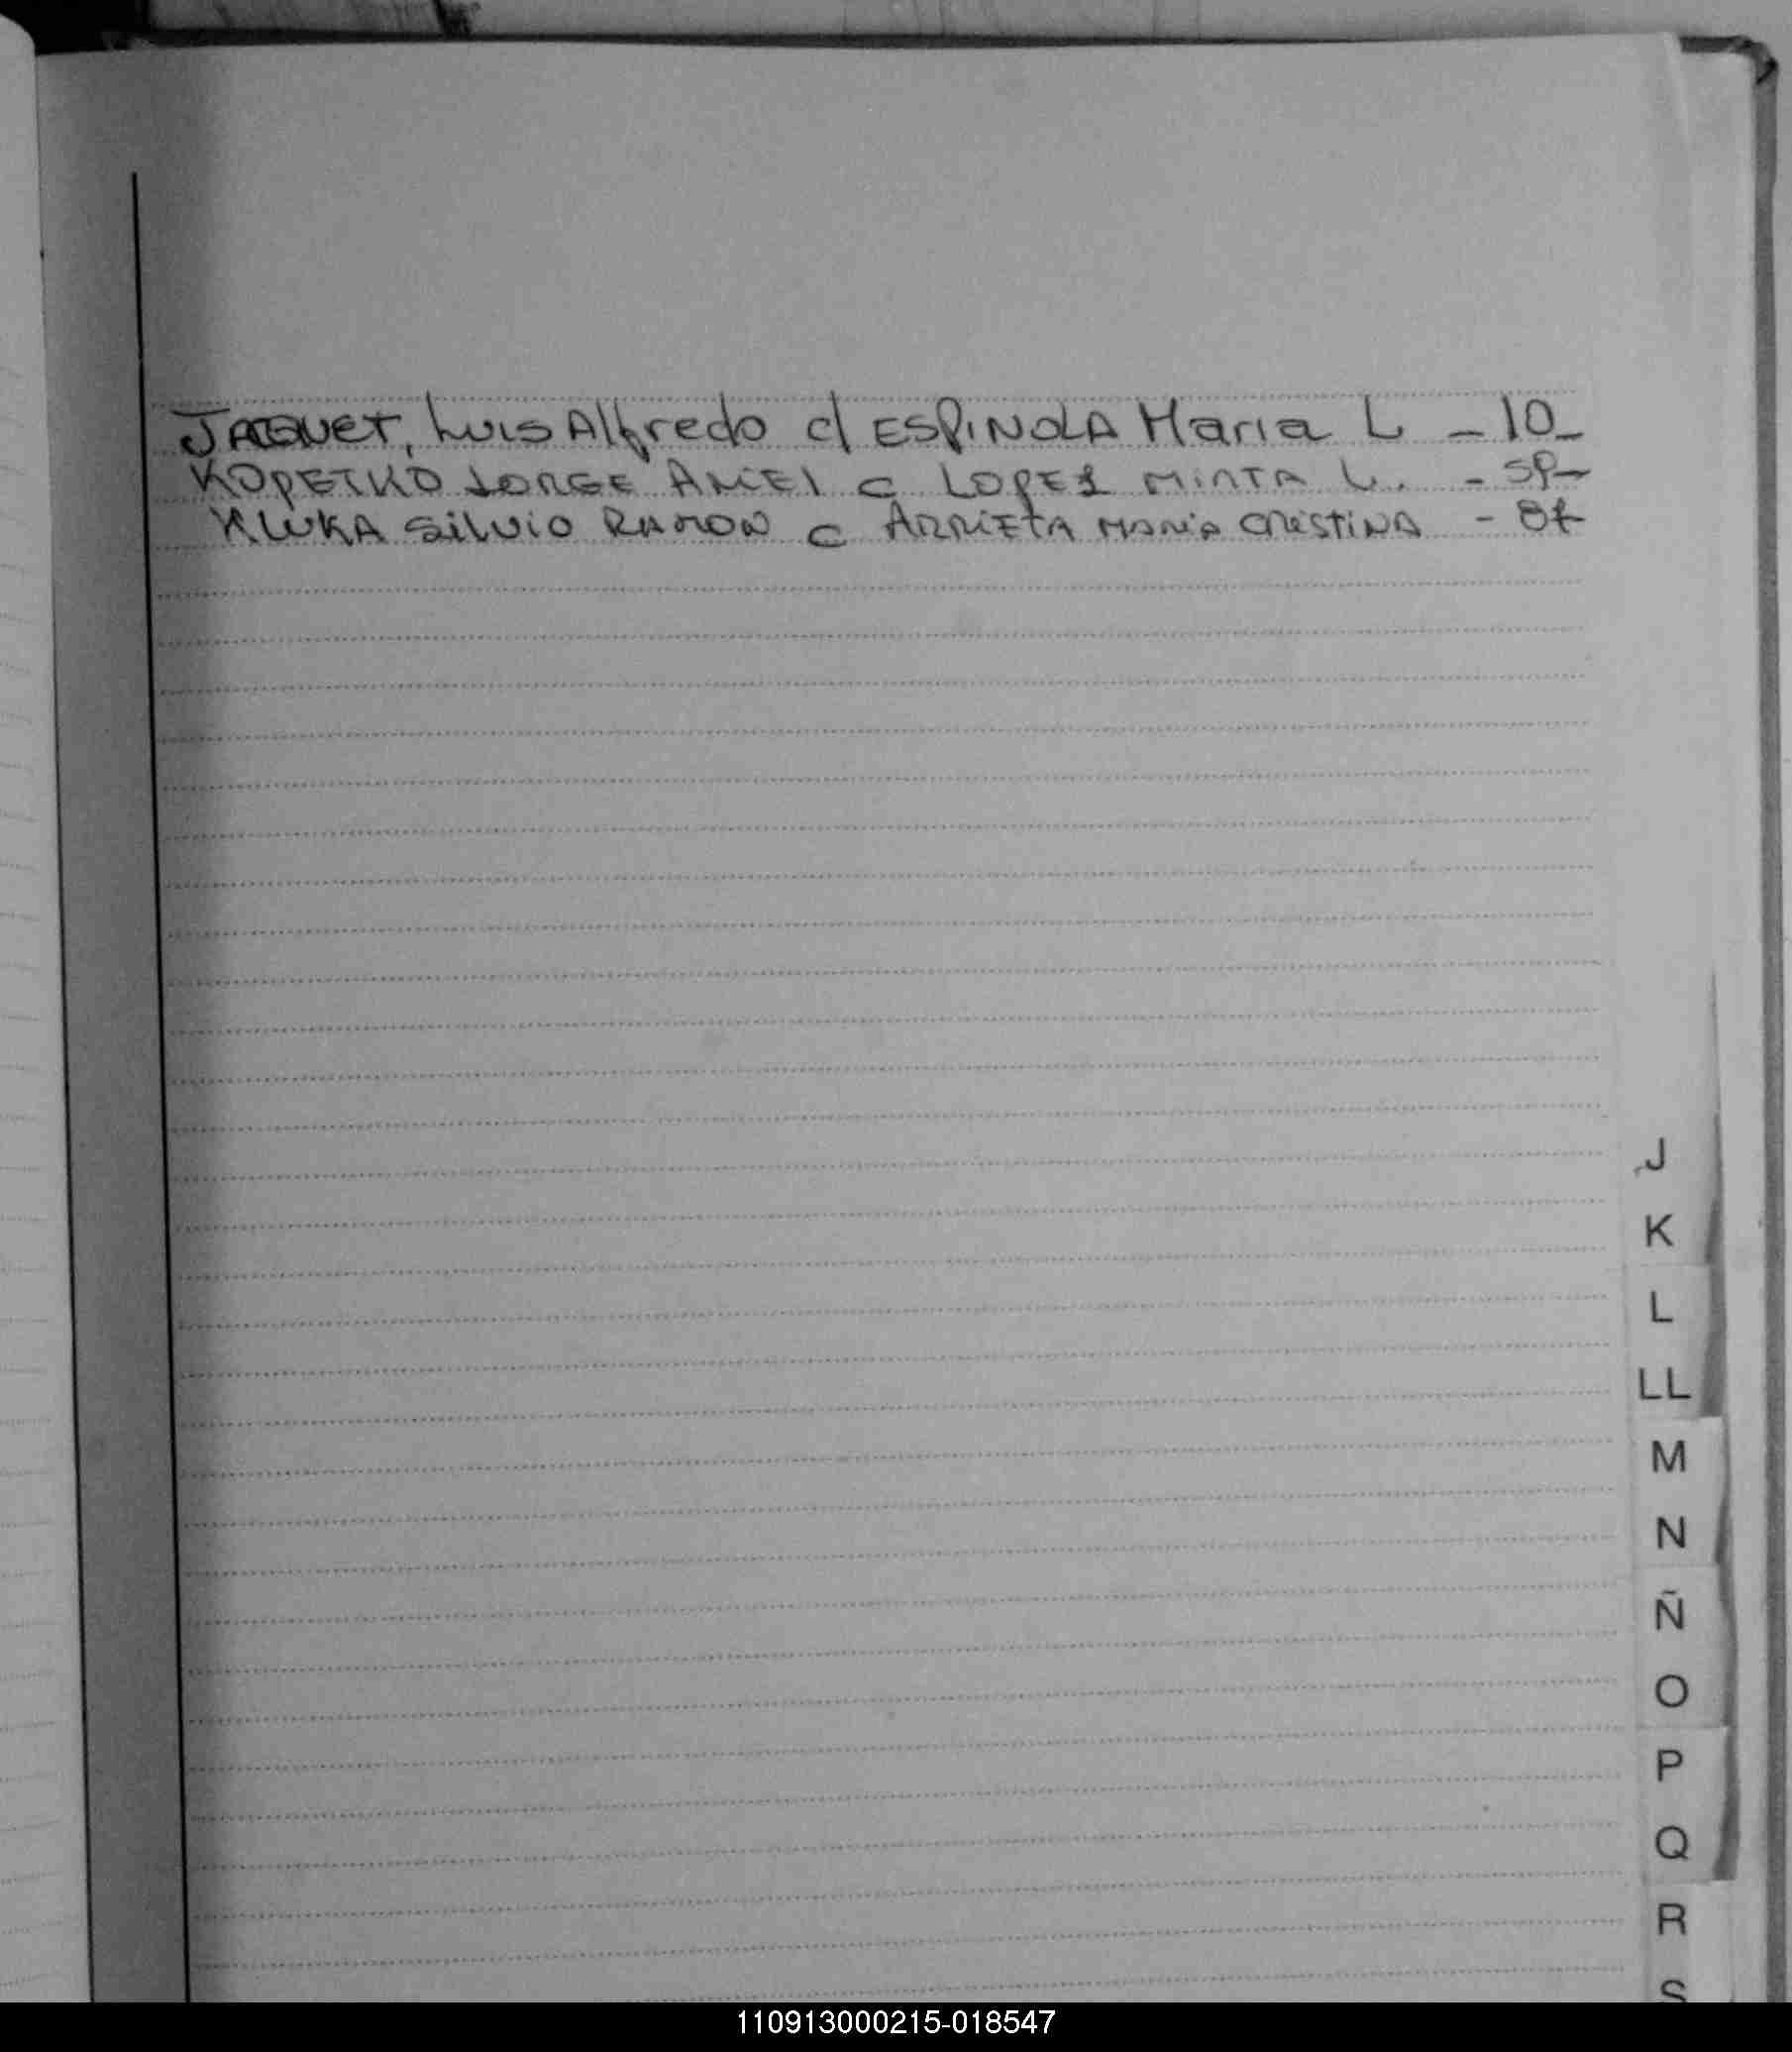 JAQUET, Luis Alfredo c/ ESPINOLA Maria L - 10 -
KOPETKO JORGE ARIEL c LOPEZ MIRTA L. -
KLUKA Silvio RAMON c ARRIETA MARIA CRISTINA -
J
K
L
LL
M
N
Ñ
O
P
Q
R
S
110913000215-018547